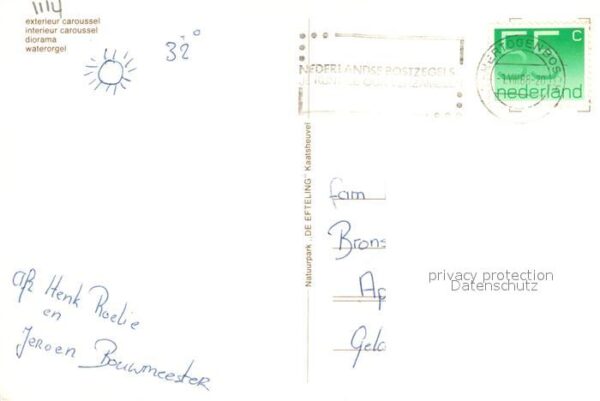 1114
exterieur caroussel
interieur caroussel
diorama
waterorgel
32°
NEDERLANDSE POSTZEGELS
55 c
nederland
Natuurpark „DE EFTELING" Kaatsheuvel
fam
Brons
Ap
Geld
privacy protection
Datenschutz
afz Henk Roelie
en
Jeroen Bouwmeester